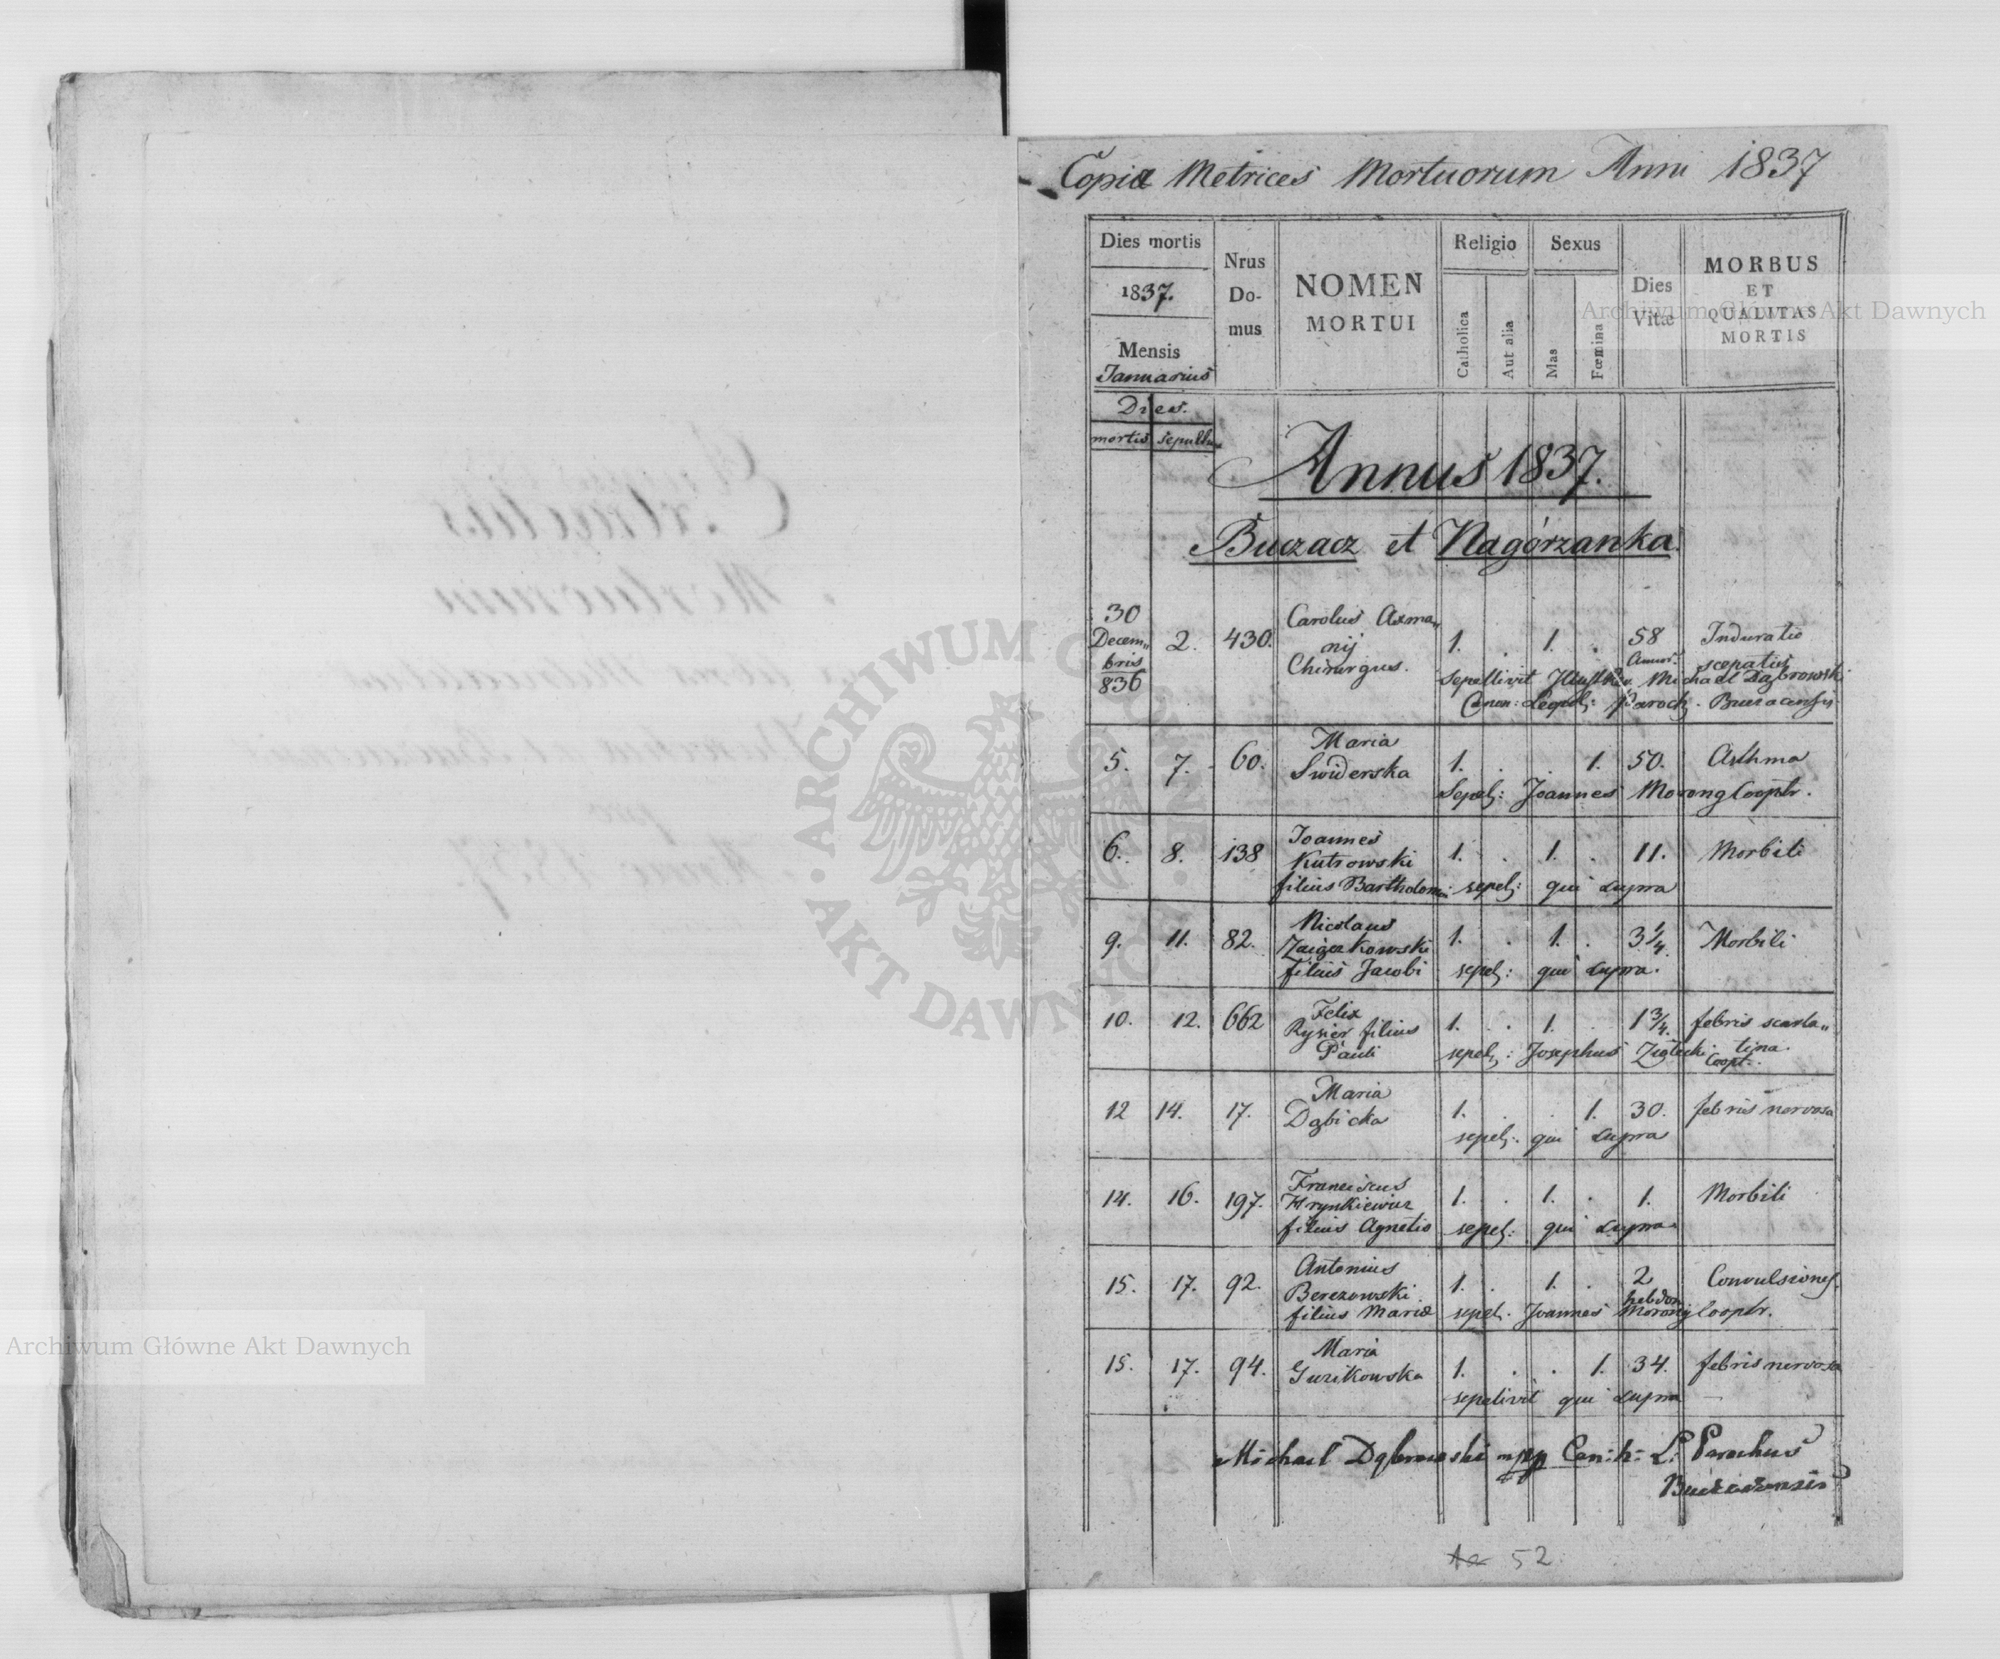 Copia Metrices Mortuorum Anni 1837
Dies mortis
1837.
Mensis
Januarius
Nrus
Do-
mus
NOMEN
MORTUI
Religio
Catholica
Aut alia
Sexus
Mas
Fœmina
Dies
Vitæ
MORBUS
ET
QUALITAS
MORTIS
Dies.
mortis sepultu
Annus 1837.
Buczacz et Nagórzanka.
30
Decem„
bris
836
2. 430.
Carolus Axma„
nij
Chirurgus.
1. . 1. . 58
Annor.
Induratio
scepatis
sepellivit Michael Dąbrowski
Canon: Leopol: Paroch. Buczacensis
5. 7. 60. Maria
Swiderska
1. . . 1. 50. Asthma
Sepel: Joannes Morong Cooptr.
6. 8. 138 Joannes
Kutrowski
filius Bartholomei
1. . 1. . 11. Morbili
sepel: qui supra
9. 11. 82. Nicolaus
filius Jacobi
1. . 1. . 3 1/4. Morbili
sepel: qui supra.
10. 12. 662 Felix
Rysier filius
Pauli
1. . 1. . 1 3/4. febris scarla„
tina.
sepel: Josephus Coopt:.
12 14. 17. Maria
Dąbicka
1. . . 1. 30. febris nervosa
sepel: qui supra
14. 16. 197. Franciscus
Hrynkiewicz
filius Agnetis
1. . 1. . 1. Morbili
sepel: qui supra
15. 17. 92. Antonius
Berezowski
filius Mariæ
1. . 1. . 2
hebdom
Convulsiones.
sepel. Joannes Morong Cooptr.
15. 17. 94. Maria
Guzikowska
1. . . 1. 34. febris nervosa
sepelivit qui supra
Michael Dąbrowski mpp Can: h: L: Parochus
Buczaczensis
52
Archiwum Główne Akt Dawnych
Archiwum Główne Akt Dawnych
ARCHIWUM GŁÓWNE
AKT DAWNYCH